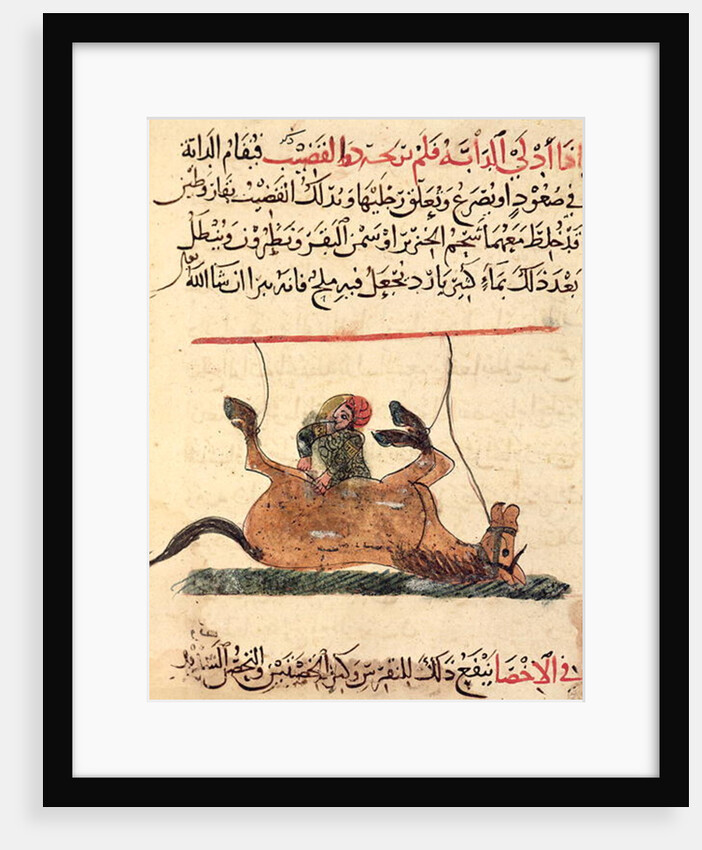 اذا أدلى الدابة فلم يرجع القضيب فيقام الدابة
في صعود او يصرع ويعلق رجليها ويدلك القضيب بقار وطين
قد خلط معهما شحم الخنزير او سمن البقر ونطرون وينطل
بعد ذلك بماء كثير بارد يجعل فيه ملح فانه يبرا ان شا الله
في الاخصا ينفع ذلك للنقرس وكبر الخصيتين